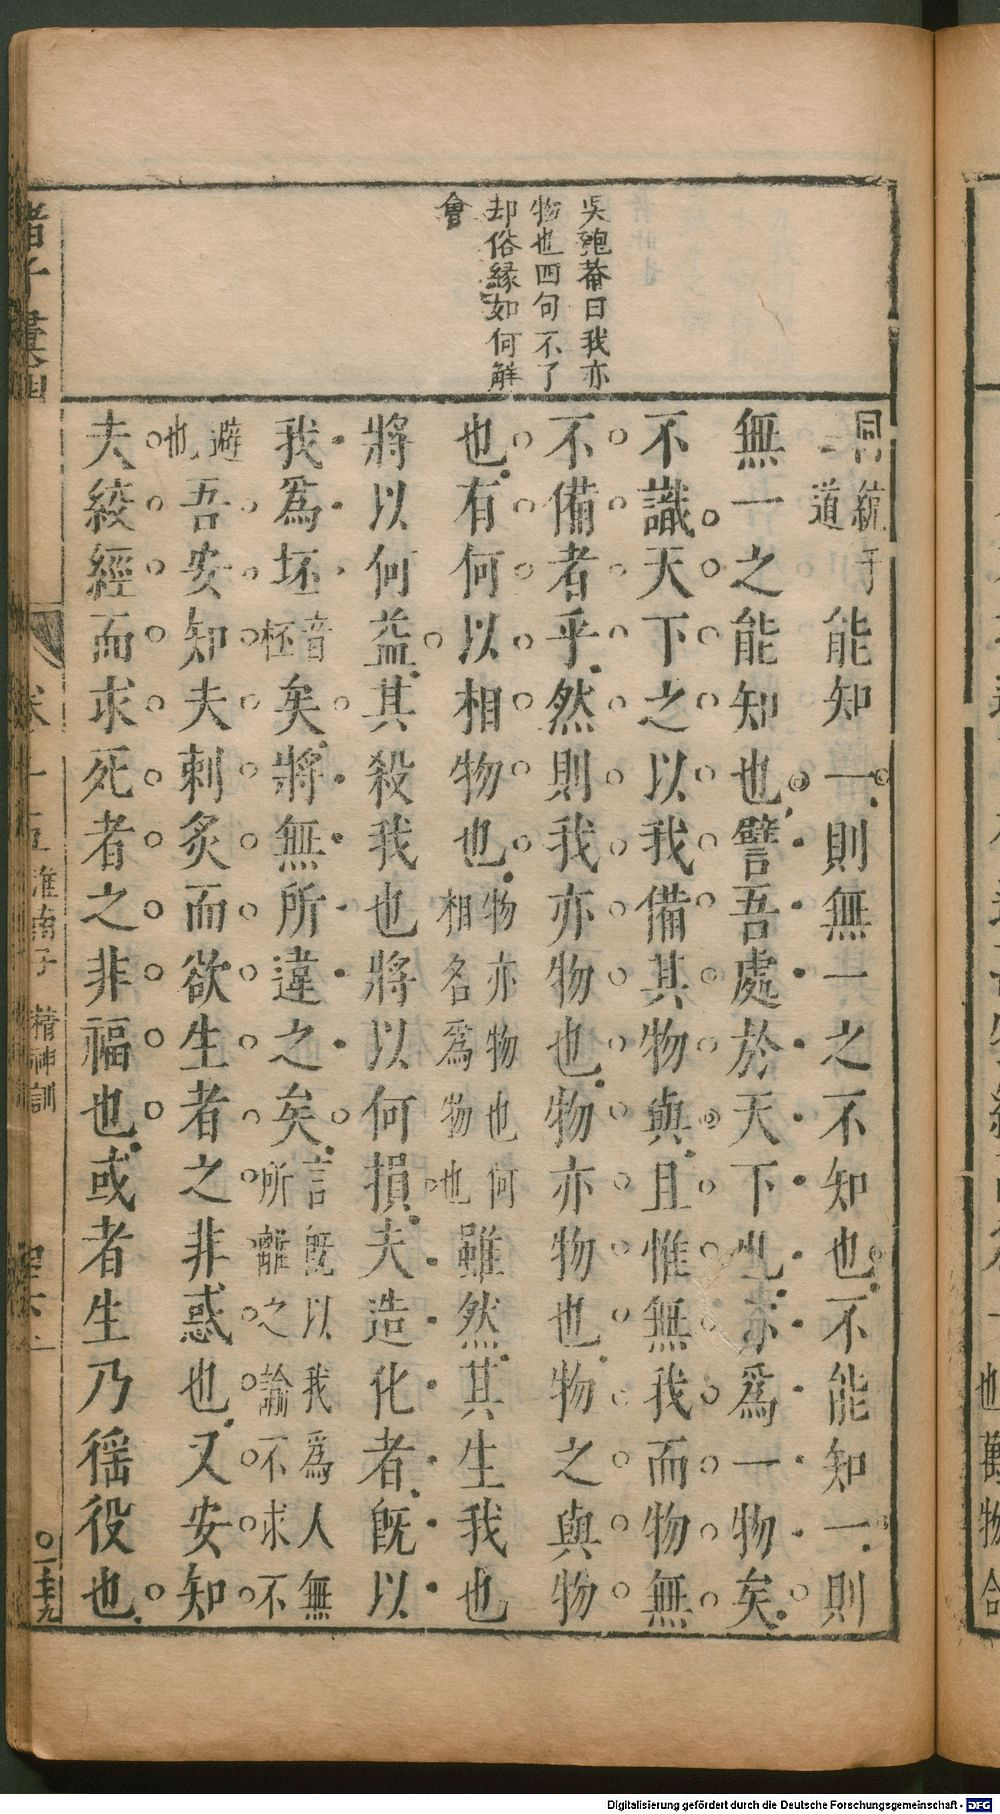 吳匏菴曰我亦
物也四句不了
却俗緣如何解
會
同統于道能知一則無一之不知也不能知一則
無一之能知也譬吾處於天下也亦爲一物矣
不識天下之以我備其物與且惟無我而物無
不備者乎然則我亦物也物亦物也物之與物
也有何以相物也物亦物也何相名爲物也雖然其生我也
將以何益其殺我也將以何損夫造化者旣以
我爲坯音柸矣將無所違之矣言旣以我爲人無所離之諭不求不
避也吾安知夫刺炙而欲生者之非惑也又安知
夫絞經而求死者之非福也或者生乃徭役也
諸子彙函
卷十五 淮南子 精神訓
二十九
也
物合
Digitalisierung gefördert durch die Deutsche Forschungsgemeinschaft - DFG